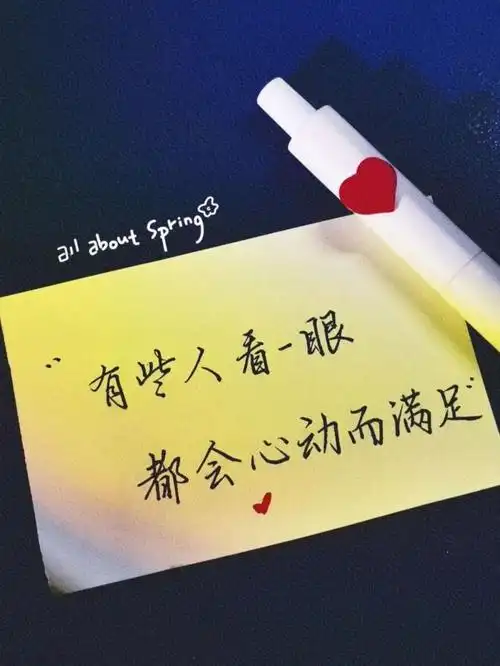 all about Spring
“有些人看一眼
都会心动而满足”